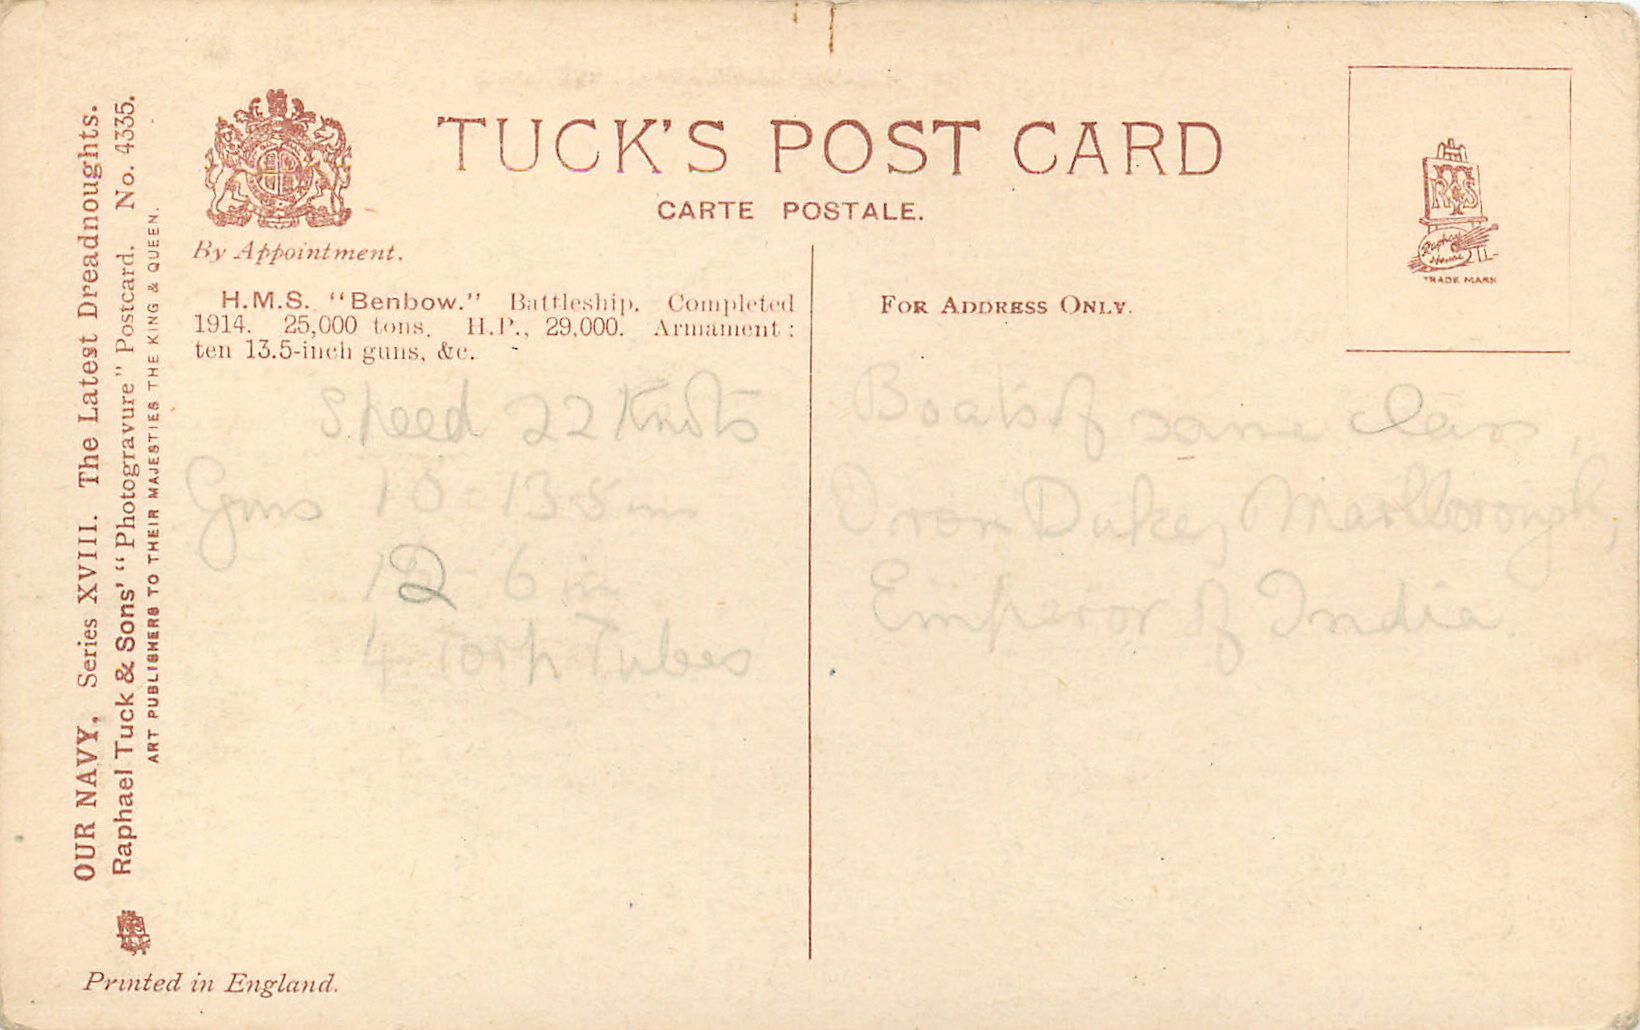 TUCK'S POST CARD
CARTE POSTALE.
By Appointment.
H.M.S. "Benbow." Battleship. Completed
1914. 25,000 tons. H.P., 29,000. Armament:
ten 13.5-inch guns, &c.
Speed 22 Knots
Guns 10 - 13.5 in
12 - 6 in
4 Torp Tubes
FOR ADDRESS ONLY.
Boats of same class,
Iron Duke, Marlborough,
Emperor of India.
Raphael
House
TRADE MARK
OUR NAVY, Series XVIII. The Latest Dreadnoughts.
Raphael Tuck & Sons' "Photogravure" Postcard. No. 4335.
ART PUBLISHERS TO THEIR MAJESTIES THE KING & QUEEN.
Printed in England.